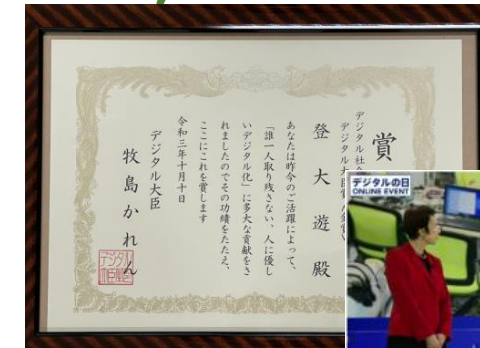 賞
デジタル社会
デジタル大臣賞
登 大 遊 殿
あなたは昨今のご活躍によって、
「誰一人取り残さない、人に優し
いデジタル化」に多大な貢献をさ
れましたのでその功績をたたえ、
ここにこれを賞します
令和三年十月十日
デジタル大臣
牧島かれん
デジタルの日
ONLINE EVENT